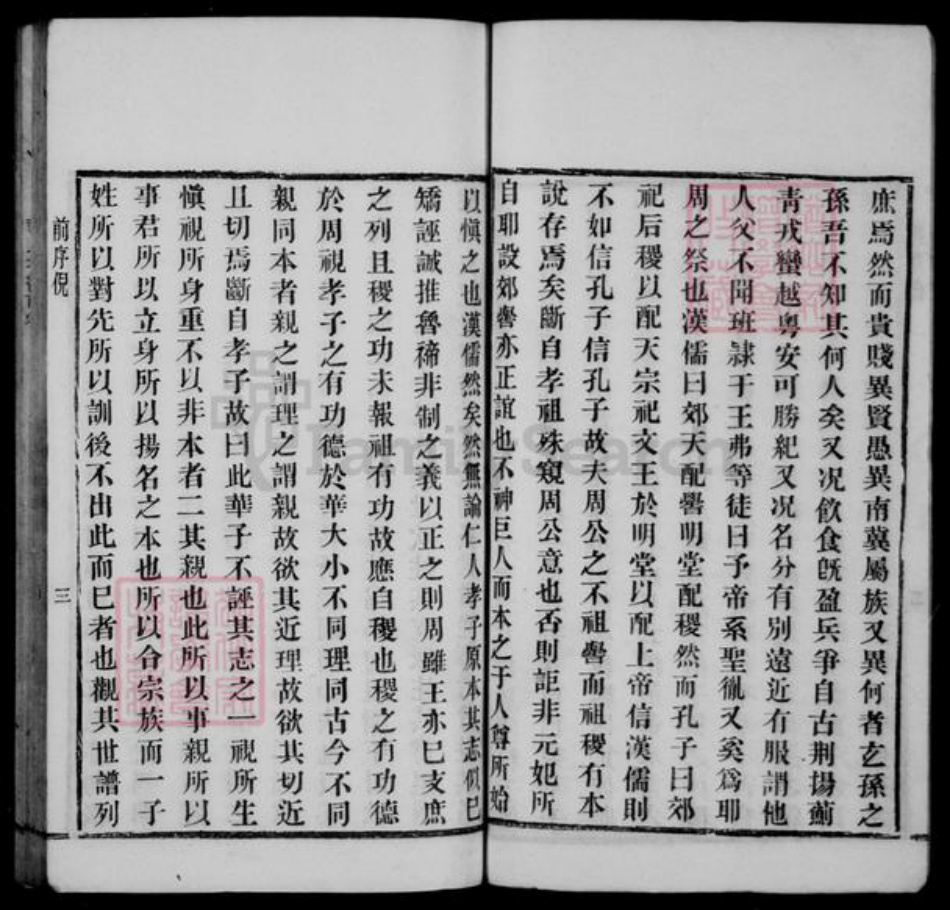 庶焉然而貴賤異賢愚異南冀屬族又異何者玄孫之
孫吾不知其何人矣又况飮食旣盈兵爭自古荆揚薊
青戎蠻越粤安可勝紀又况名分有别遠近有服謂他
人父不聞班隷于王弗等徒曰予帝系聖胤又奚爲耶
周之祭也漢儒曰郊天配嚳明堂配稷然而孔子曰郊
祀后稷以配天宗祀文王於明堂以配上帝信漢儒則
不如信孔子信孔子故夫周公之不祖嚳而祖稷有本
說存焉矣斷自孝祖殊窺周公意也否則詎非元妃所
自耶設郊嚳亦正誼也不神巨人而本之于人尊所始
以愼之也漢儒然矣然無論仁人孝子原本其志似巳
矯誣誠推魯禘非制之義以正之則周雖王亦巳支庶
之列且稷之功未報祖有功故應自稷也稷之有功德
於周視孝子之有功德於華大小不同理同古今不同
親同本者親之謂理之謂親故欲其近理故欲其切近
且切焉斷自孝子故曰此華子不誣其志之一視所生
愼視所身重不以非本者二其親也此所以事親所以
事君所以立身所以揚名之本也所以合宗族而一子
姓所以對先所以訓後不出此而巳者也觀其世譜列
前序倪
三
Family Search